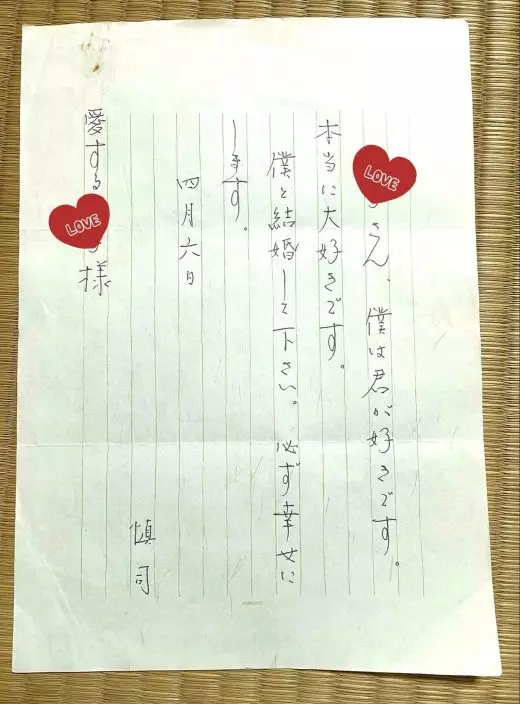 さん、僕は君が好きです。
本当に大好きです。
僕と結婚して下さい。必ず幸せに
します。
四月六日
慎司
愛する
様
LOVE
LOVE
KOKUYO